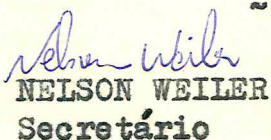 Nelson Weiler
NELSON WEILER
Secretário